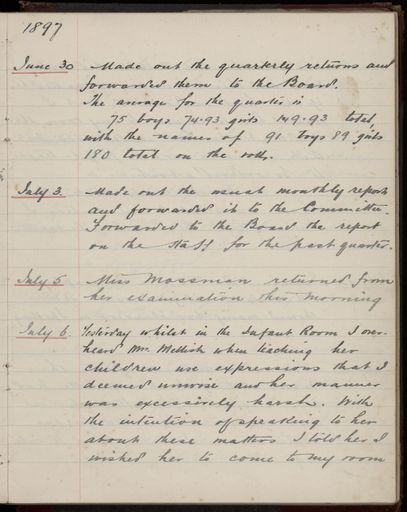 1897
June 30 Made out the quarterly returns and
forwarded them to the Board.
The average for the quarter is
75 boys 74.93 girls 149.93 total
with the names of 91 boys 89 girls
180 total on the rolls.
July 3. Made out the usual monthly report
and forwarded it to the Committee.
Forwarded to the Board the report
on the Staff for the past quarter.
July 5 Miss Mossman returned from
her examination this morning
July 6. Yesterday whilst in the Infant Room I over-
heard Mr. Mellish when teaching her
children use expressions that I
deemed unwise and her manner
was excessively harsh. With
the intention of speaking to her
about these matters I told her I
wished her to come to my room